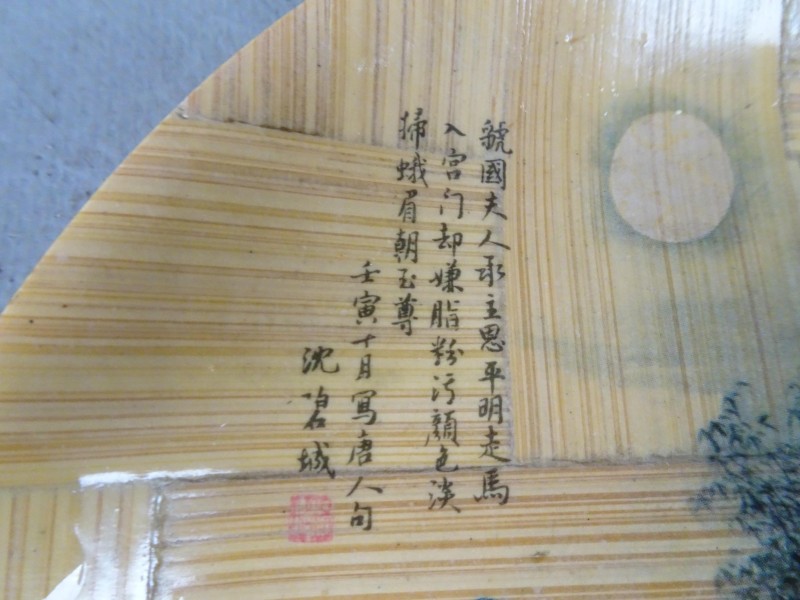 虢國夫人承主恩平明走馬
入宮门却嫌脂粉污顏色淡
掃蛾眉朝至尊
壬寅十月寫唐人句
沈碧城